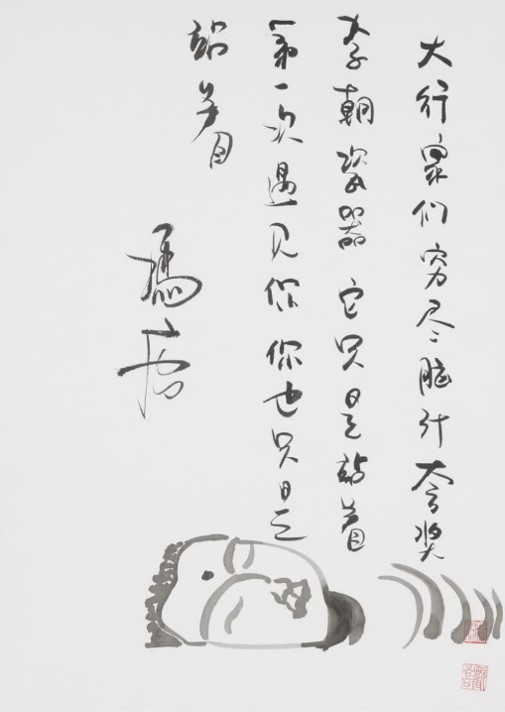 大行家们穷尽脑汁夸奖
李朝瓷器它只是站着
第一次遇见你你也只是
站着
馮唐